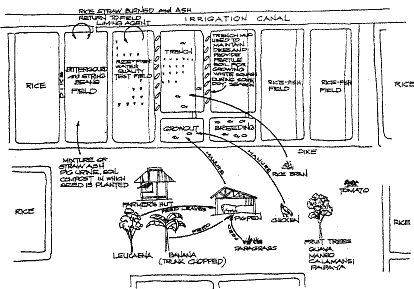 RICE STRAW BURNED and ASH
RETURN TO FIELD
LIMING AGENT
IRRIGATION CANAL
RICE
DIKE
BITTERGOURD and STRING
BEANS
FIELD
RICE-FISH
WATER
QUALITY
TEST FIELD
TRENCH
TRENCH MUD
USED TO
MAINTAIN
DIKES AND
PROVIDE
FERTILE
MEDIUM FOR
GROWING
WHITE SQUASH
DURING
DRY SEASON
RICE-FISH
FIELD
RICE-FISH
FIELD
RICE
GROWOUT
BREEDING
DIKE
MIXTURE OF
STRAW ASH
PIG URINE, SOIL
COMPOST IN WHICH
SEED IS PLANTED
MANURE
MANURE
RICE BRAN
TOMATO
RICE
FARMER'S HUT
FEED LEAVES
PIG PEN
CHICKEN
RICE
FEED
PARAGRASS
LEUCAENA
BANANA
(TRUNK CHOPPED)
FRUIT TREES
GUAVA
MANGO
CALAMANSI
PAPAYA